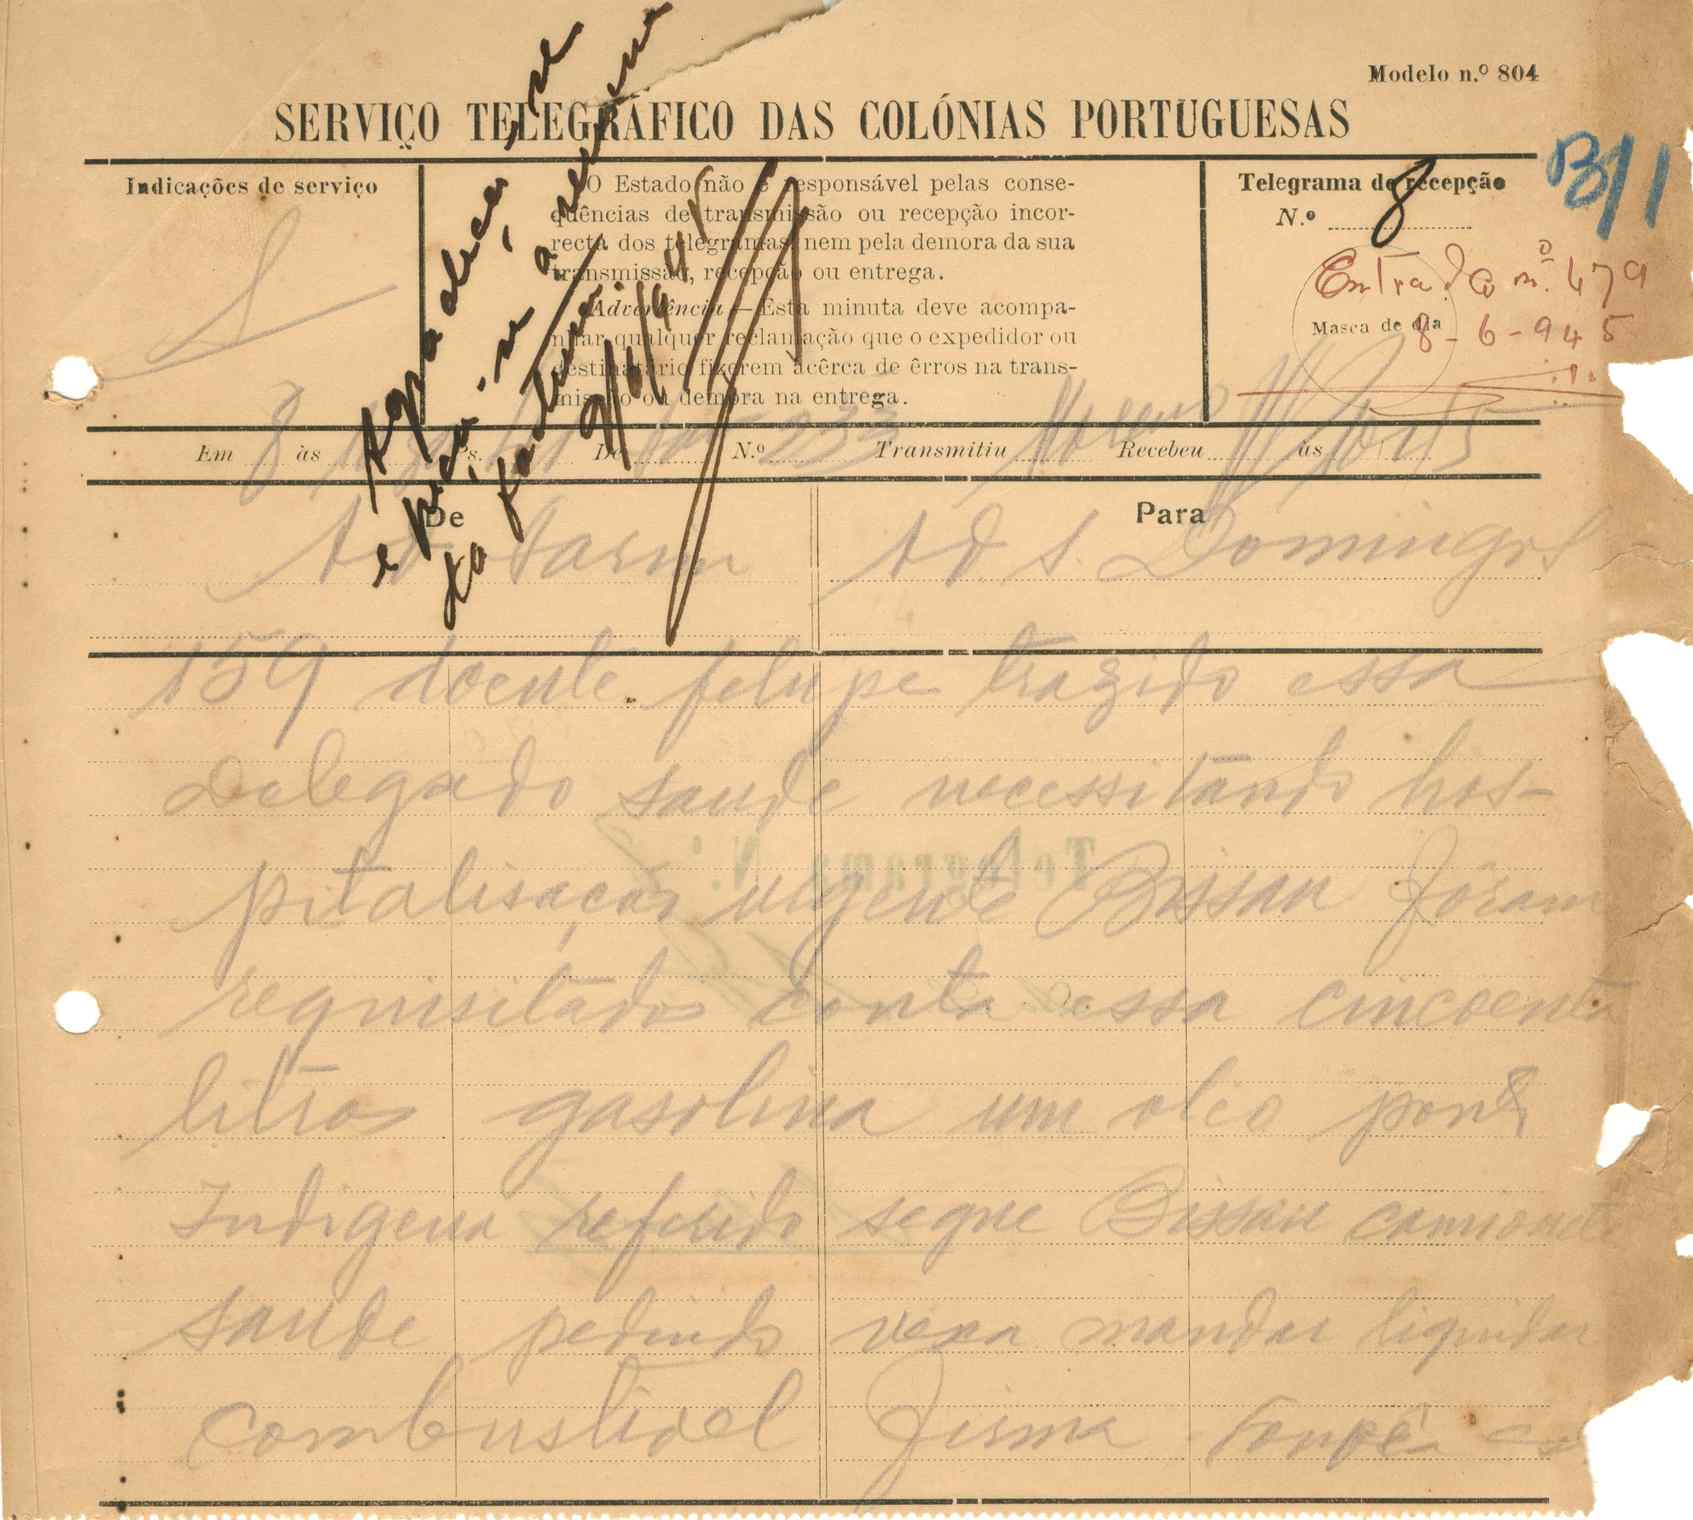 Modelo n.º 804
SERVIÇO TELEGRÁFICO DAS COLÓNIAS PORTUGUESAS
Indicações de serviço
S
O Estado não é responsável pelas conse-
qüências de transmissão ou recepção incor-
recta dos telegramas, nem pela demora da sua
transmissão, recepção ou entrega.
Advertência — Esta minuta deve acompa-
nhar qualquer reclamação que o expedidor ou
destinatário fizerem àcêrca de êrros na trans-
missão ou demora na entrega.
Telegrama de recepção
N.º 8
B/1
Entrada n.º 479
Marca de dia
8-6-945
Agradecer-se
e peça-se a remessa
da factura.
9/6/945
Em 8 às Ps. De N.º 233 Transmitiu Recebeu às
De
Para
Ad Farim
Ad. S. Domingos
159 doente felupe trazido essa
Delegado saude necessitando hos-
pitalisação urgente Bissau Foram
requisitados conta essa cincoenta
litros gasolina um oleo ponto
Indigena referido segue Bissau camionete
saude pedindo vexa mandar liquidar
combustivel Firma
Telegrama N.º